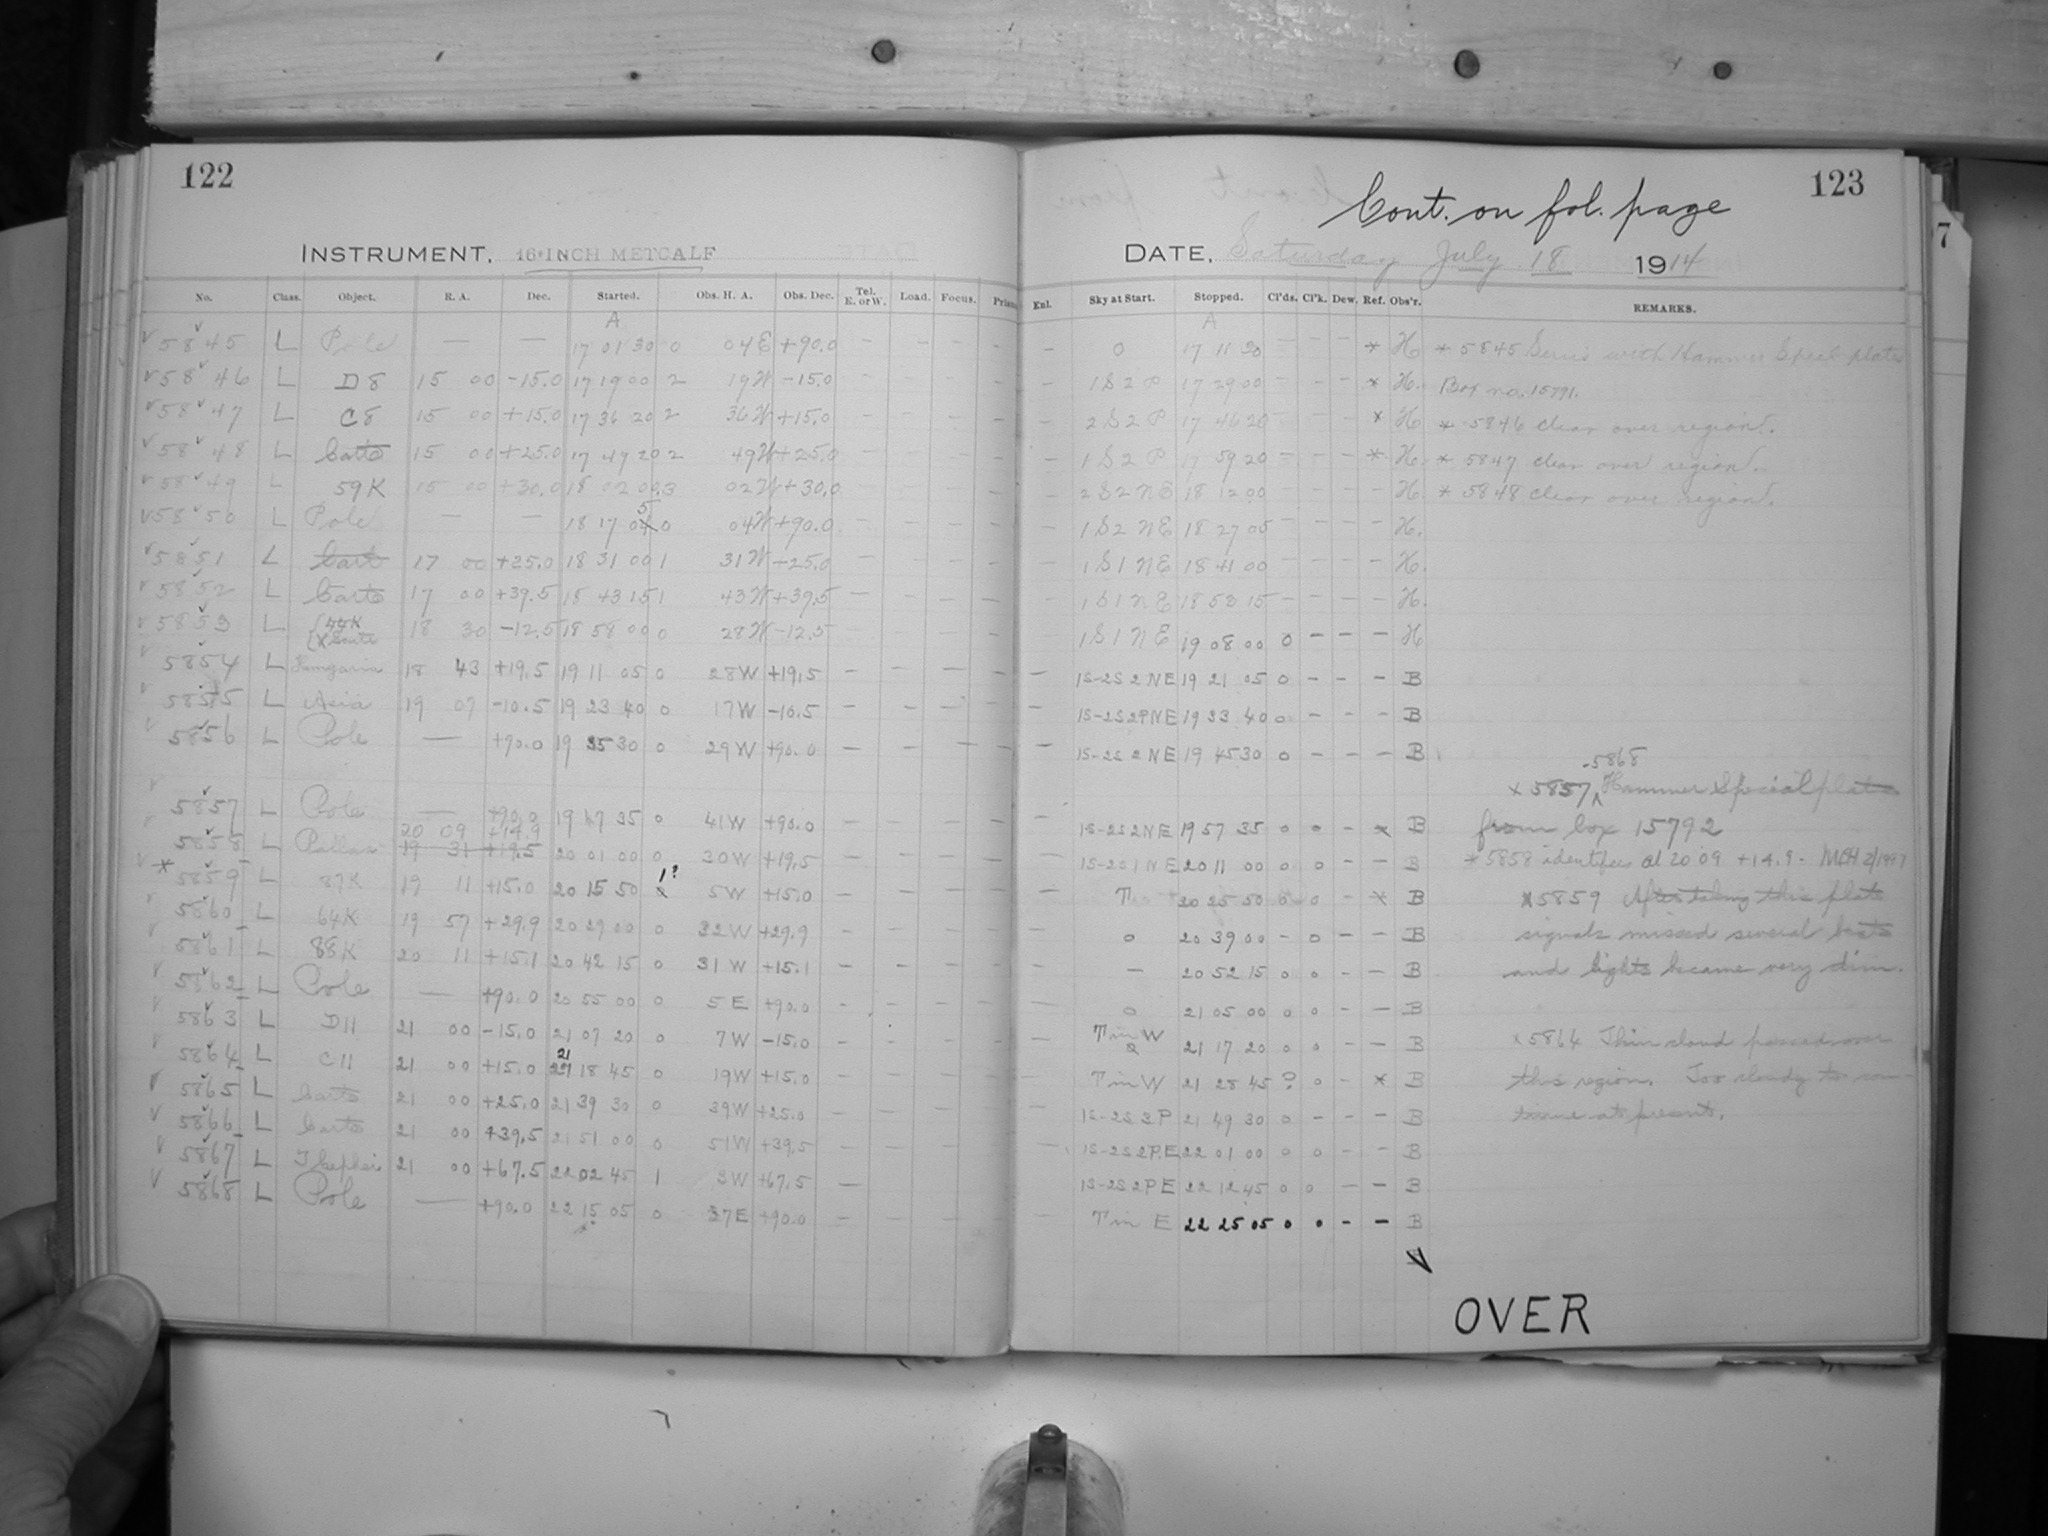 122
INSTRUMENT, 16-INCH METCALF
No. Class. Object. R. A. Dec. Started. Obs. H. A. Obs. Dec. Tel. E. or W. Load. Focus. Prism
A
5845 L Pole — — 17 01 30 0 04E +90.0
5846 L D8 15 00 -15.0 17 19 00 2 19W -15.0
5847 L C8 15 00 +15.0 17 36 20 2 36W +15.0
5848 L Carte 15 00 +25.0 17 49 20 2 49W +25.0
5849 L 59K 15 00 +30.0 18 02 00 3 02W +30.0
5850 L Pole — — 18 17 05 0 04W +90.0
5851 L Carte 17 00 +25.0 18 31 00 1 31W +25.0
5852 L Carte 17 00 +39.5 18 43 15 1 43W +39.5
5853 L 44K 18 30 -12.5 18 58 00 0 28W -12.5
5854 L Hungaria 18 43 +19.5 19 11 05 0 28W +19.5
5855 L Asia 19 07 -10.5 19 23 40 0 17W -10.5
5856 L Pole — +90.0 19 35 30 0 29W +90.0
5857 L Pole — +90.0 19 47 35 0 41W +90.0
20 09 +14.9
5858 L Pallas 19 31 +19.5 20 01 00 0 30W +19.5
* 5859 L 87K 19 11 +15.0 20 15 50 1? 5W +15.0
5860 L 64K 19 57 +29.9 20 29 00 0 32W +29.9
5861 L 88K 20 11 +15.1 20 42 15 0 31W +15.1
5862 L Pole — +90.0 20 55 00 0 5E +90.0
5863 L D11 21 00 -15.0 21 07 20 0 7W -15.0
5864 L C11 21 00 +15.0 21 18 45 0 19W +15.0
5865 L Carte 21 00 +25.0 21 39 30 0 39W +25.0
5866 L Carte 21 00 +39.5 21 51 00 0 51W +39.5
5867 L T Cephei 21 00 +67.5 22 02 45 1 3W +67.5
5868 L Pole — +90.0 22 15 05 0 37E +90.0
123
Cont. on fol. page
DATE, Saturday July 18 1914
Enl. Sky at Start. Stopped. Cl'ds. Cl'k. Dew. Ref. Obs'r. REMARKS.
A
0 17 11 30 — — — * H * 5845 Series with Hammer Special plates
1S2P 17 29 00 — — — * H. Box no. 15791.
2S2P 17 46 20 — — — * H * 5846 clear over region.
1S2P 17 59 20 — — — * H. * 5847 clear over region.
2S2NE 18 12 00 — — — — H. * 5848 clear over region.
1S2NE 18 27 05 — — — — H.
1S1NE 18 41 00 — — — — H.
1S1NE 18 53 15 — — — — H.
1S1NE 19 08 00 0 — — — H
1S-2S2NE 19 21 05 0 — — — B
1S-2S2PNE 19 33 40 0 — — — B
1S-2S2NE 19 45 30 0 — — — B
-5868
x 5857 ^ Hammer Special plates
1S-2S2NE 19 57 35 0 0 — x B from box 15792
20 11 00 0 0 — — B * 5858 identifies at 20 09 +14.9.
T 20 25 50 0 0 — x B x 5859 After taking this plate
0 20 39 00 — 0 — — B signals missed several beats
— 20 52 15 0 0 — — B and lights became very dim.
0 21 05 00 0 0 — — B
T in W 21 17 20 0 0 — — B x 5864 Thin cloud passed over
T in W 21 28 45 ? 0 — x B this region. Too cloudy to con-
1S-2S3P 21 49 30 0 — — — B tinue at present.
1S-2S2P.E 22 01 00 0 0 — — B
1S-2S2PE 22 12 45 0 0 — — B
T in E 22 25 05 0 0 — — B
OVER